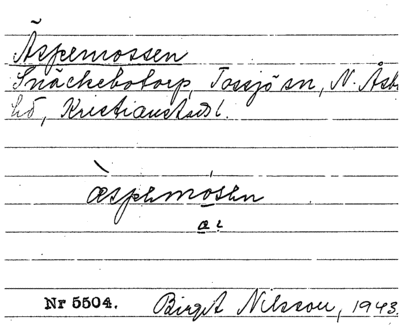 Äspemossen
Snäckebotorp, Tossjö sn, N. Åsbo
hd, Kristianst. l.
`æspemósen
æ:
Nr 5504. Birgit Nilsson, 1943.